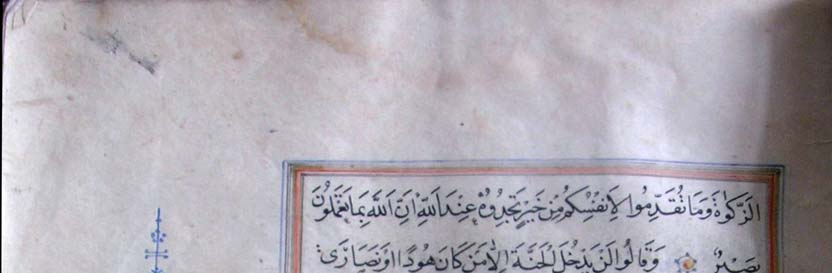 الزَّكٰوةَ وَمَا تُقَدِّمُوا لِاَنْفُسِكُمْ مِنْ خَيْرٍ تَجِدُوهُ عِنْدَ اللّٰهِ اِنَّ اللّٰهَ بِمَا تَعْمَلُونَ
بَصِيرٌ وَقَالُوا لَنْ يَدْخُلَ الْجَنَّةَ اِلَّا مَنْ كَانَ هُودًا اَوْ نَصَارٰى